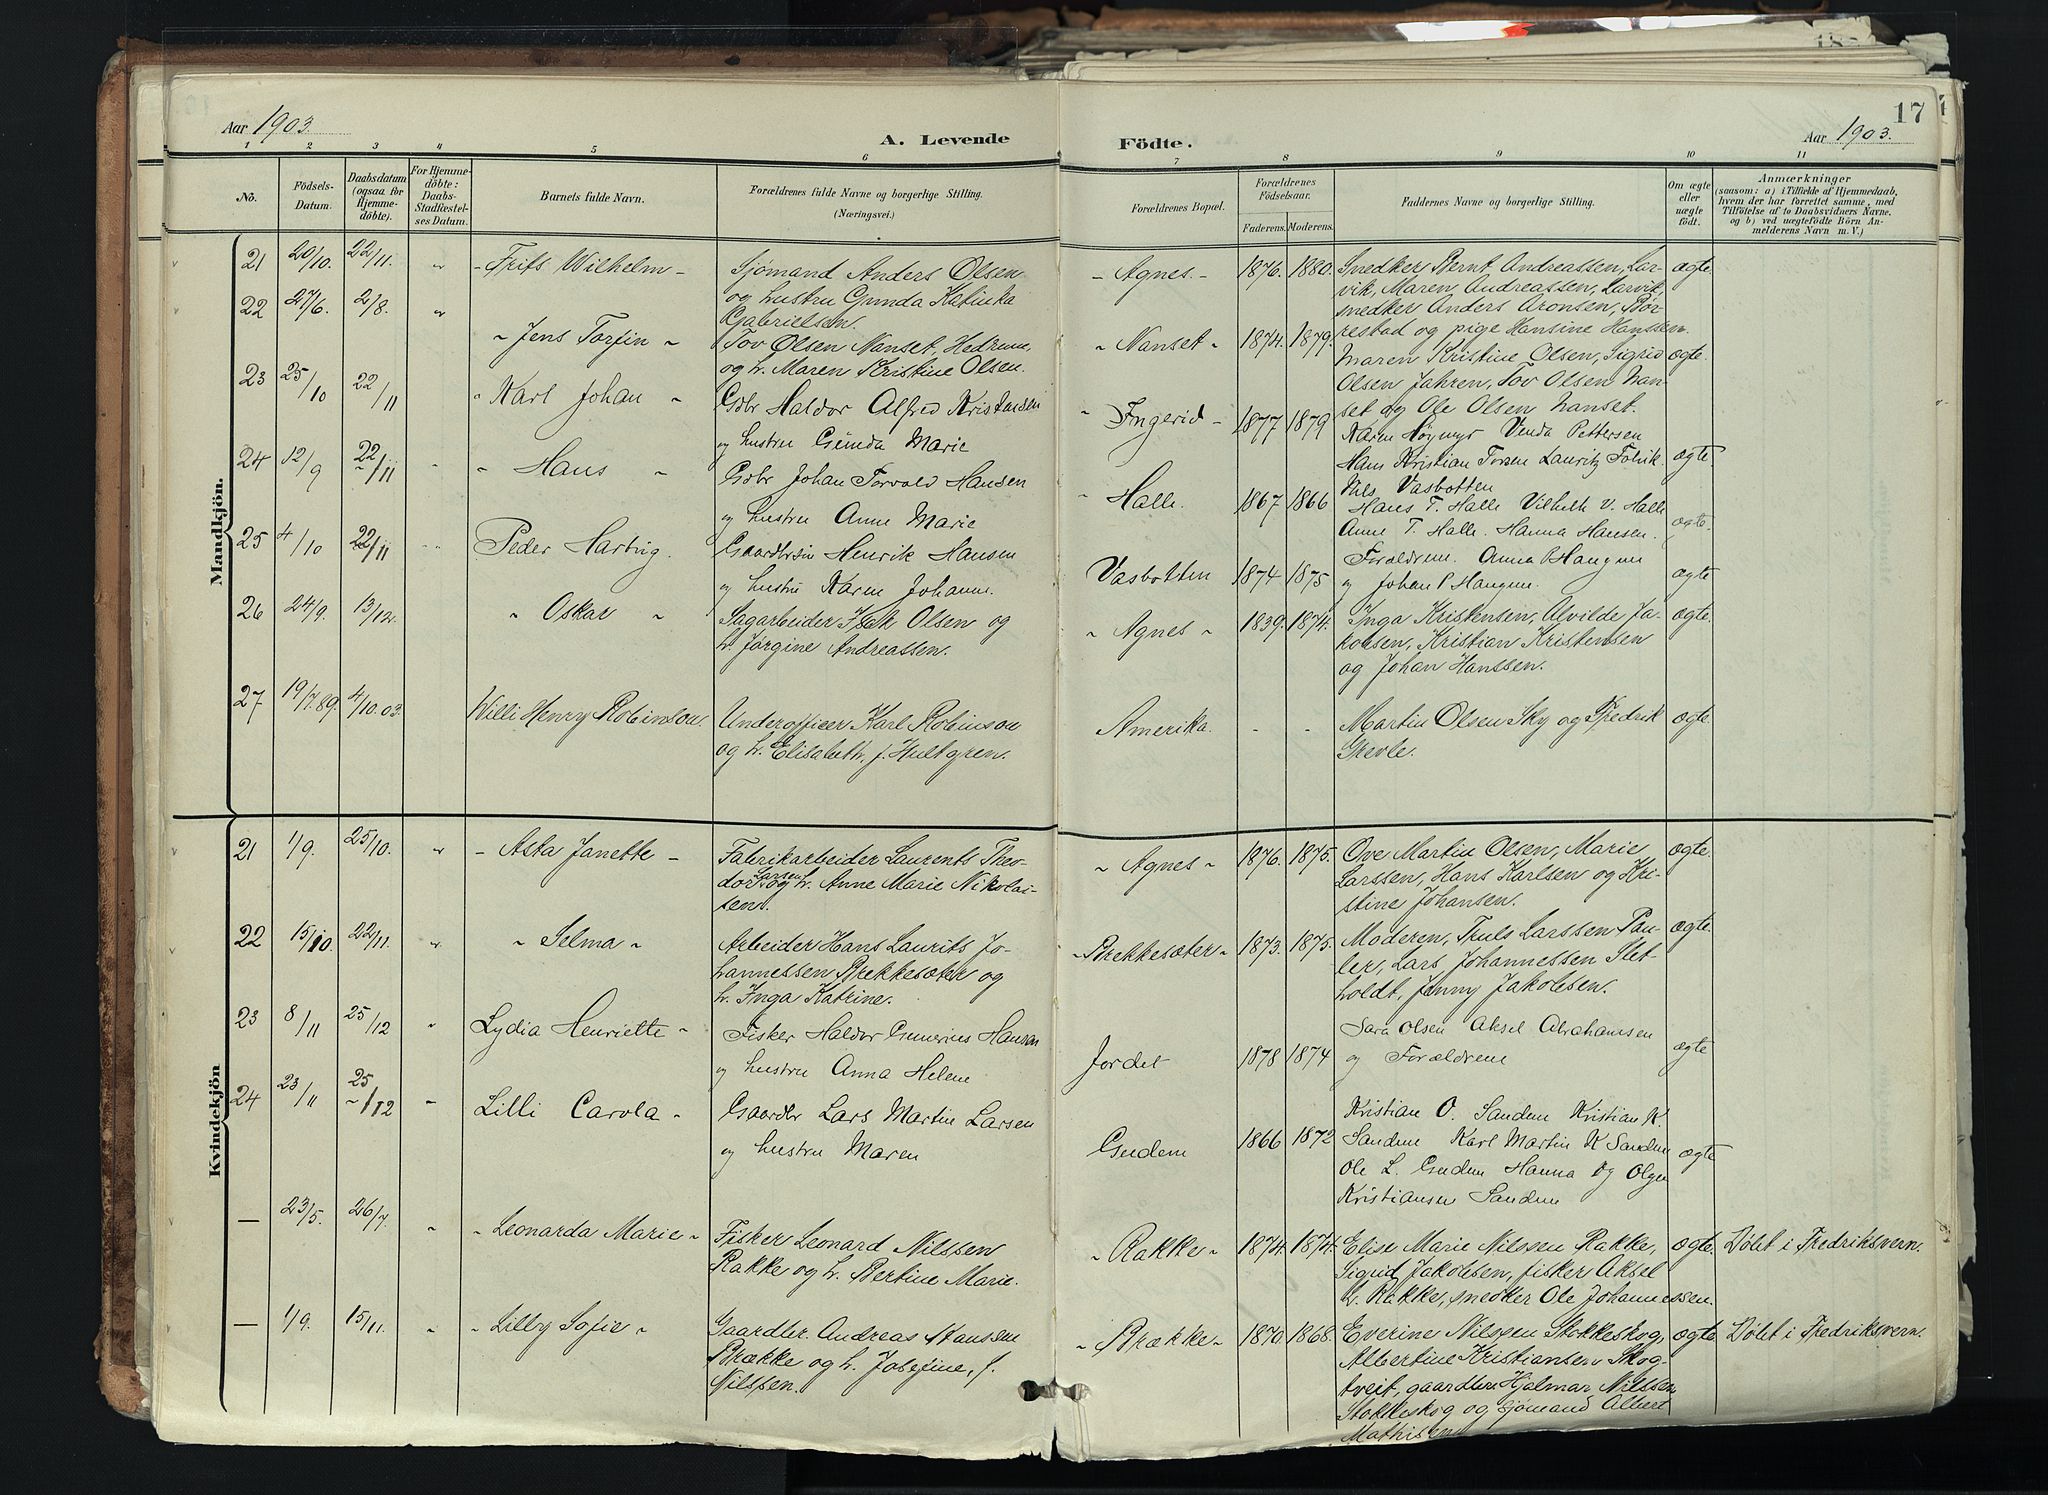 17
Aar 1903.
A. Levende
Födte.
Aar 1903.
1 2 3 4 5 6 7 8 9 10 11
No.
Födsels-Datum.
Daabsdatum (ogsaa for Hjemmedöbte).
For Hjemmedöbte: Daabs-Stadfæstelses Datum.
Barnets fulde Navn.
Forældrenes fulde Navne og borgerlige Stilling.
(Næringsvei.)
Forældrenes Bopæl.
Forældrenes Födselsaar.
Faderens. Moderens.
Faddernes Navne og borgerlige Stilling.
Om ægte eller uægte födt.
Anmærkninger
(saasom: a) i Tilfælde af Hjemmedaab, hvem der har forrettet samme, med Tilföielse af to Daabsvidners Navne, og b) ved uægtefödte Börn Anmelderens Navn m. V.)
Mandkjön.
21 20/10. 22/11. " - Frits Wilhelm - Sjømand Anders Olsen
og hustru Gunda Katinka
Gabrielsen.
- Agnes - 1876. 1880. Snedker Bernt Andreassen, Lar-
vik, Maren Andreassen, Larvik,
snedker Anders Aronsen, Bør-
restad og pige Hansine Hanssen.
ægte.
22 27/6. 2/8. " " Jens Torfin " Tov Olsen Nanset, Hedrum,
og h. Maren Kristine Olsen.
" Nanset " 1874. 1879. Maren Kristine Olsen, Sigrid
Olsen Jahren, Tov Olsen Nan-
set og Ole Olsen Nanset.
ægte.
23 25/10 22/11 " Karl Johan " Gbr Haldor Alfred Kristensen
og hustru Gunda Marie
" Ingerid - 1877 1879 Karen Høymyr Venda Pettersen
Hans Kristian Torsen Lauritz Folvik
Nils Vasbotten
ægte.
24 12/9 22/11 " " Hans " Gbr Johan Torvald Hansen
og hustru Anne Marie
" Halle. 1867 1866 Hans T. Halle Vilhelm V. Halle
Anne T. Halle. Hanna Hansen.
ægte.
25 4/10 22/11 " Peder Hartvig. Gaardbr Henrik Hansen
og hustru Karen Johanne.
Vasbotten 1874 1875 Forældrene. Anna P Haugene
og Johan P Haugene.
ægte
26 24/9. 13/12. " Oskar " Sagarbeider Isak Olsen og
h. Jørgine Andreassen.
" Agnes " 1839. 1874. Inga Kristensen, Alvilde Ja-
kobsen, Kristian Kristensen
og Johan Hanssen.
ægte.
27 19/7.89. 4/10.03. Willi Henry Robinson. Underofficer Karl Robinson
og h. Elisabeth, f. Hultgren.
Amerika. - - Martin Olsen Sky og Fredrik
Grevle.
ægte.
Kvindekjön
21 1/9. 25/10. " - Asta Janette - Fabrikarbeider Laurents Theo-
dor Larsen og h. Anne Marie Nikolai-
sen.
" Agnes " 1876. 1875. Ove Martin Olsen, Marie
Larssen, Hans Karlsen og Kri-
stine Johansen.
ægte.
22 15/10. 22/11. " " Selma " Arbeider Hans Laurits Jo-
hannessen Brekkesæter og
h. Inga Katrine.
" Brekkesæter " 1873. 1875. Moderen, Truls Larssen Pau-
ler, Lars Johannessen Slet-
holdt, Jenny Jakobsen.
ægte.
23 8/11 25/12 " Lydia Henriette " Fisker Haldor Gunerius Hansen
og hustru Anna Helene
Jordet 1878 1874 Sara Olsen Aksel Abrahamsen
og Forældrene
ægte
24 23/11 25/12 " Lilli Carola " Gaardbr Lars Martin Larsen
og hustru Maren
Gudem 1866 1872 Kristian O. Sandem Kristian K.
Sandem Karl Martin K Sandem
Ole L. Gudem Hanna og Olga
Kristiansen Sandem
ægte
— 23/5. 26/7. " " Leonarda Marie " Fisker Leonard Nilssen
Rakke og h. Bertine Marie.
" Rakke " 1874. 1874. Elise Marie Nilssen Rakke,
Sigrid Jakobsen, fisker Aksel
L. Rakke, snedker Ole Johannessen.
ægte. Døbt i Fredriksvern.
— 1/9. 15/11. " " Lilly Sofie " Gaardbr. Andreas Hanssen
Brække og h. Josefine, f.
Nilssen.
" Brække " 1870 1868. Everine Nilssen Stokkeskog,
Albertine Kristiansen Skog-
tveit, gaardbr. Hjalmar Nilssen
Stokkeskog og sjømand Albert
Mathisen
ægte. Døbt i Fredriksvern.